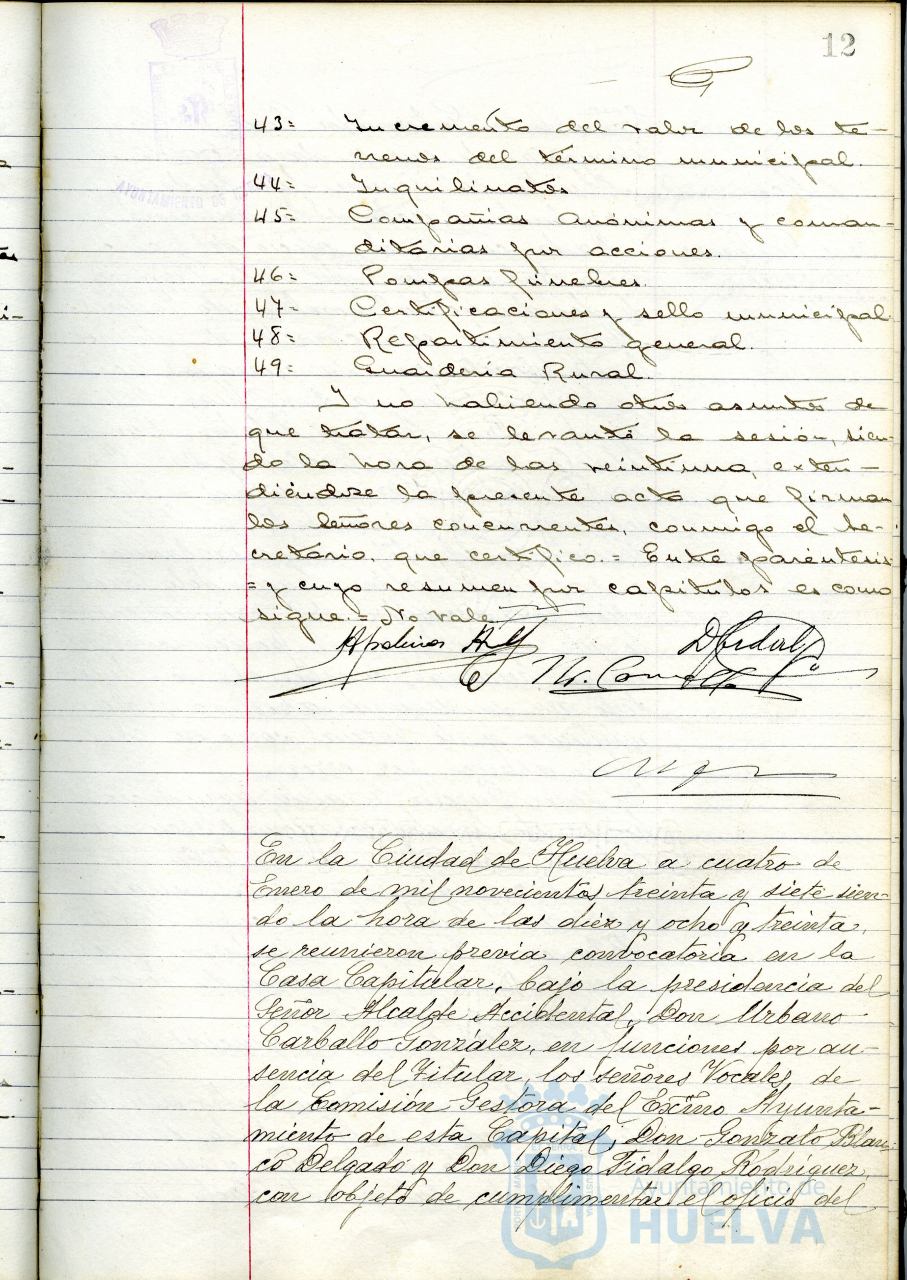 12
43= Incremento del valor de los te-
rrenos del término municipal.
44= Inquilinatos
45= Compañias anónimas y coman-
ditarias por acciones.
46= Pompas fúnebres.
47= Certificaciones y sello municipal
48= Repartimiento general.
49= Guardería Rural.
Y no habiendo otros asuntos de
que tratar, se levantó la sesión, sien-
do la hora de las veintiuna, exten-
diéndose la presente acta que firman
los señores concurrentes, conmigo el Se-
cretario, que certifico.= Entre paréntesis
= y cuyo resumen por capítulos es como
sigue.= No vale
En la Ciudad de Huelva a cuatro de
Enero de mil novecientos treinta y siete sien-
do la hora de las diez y ocho y treinta,
se reunieron previa convocatoria en la
Casa Capitular, bajo la presidencia del
Señor Alcalde Accidental, Don Urbano
Carballo González, en funciones por au-
sencia del Titular, los señores Vocales de
la Comisión Gestora del Excmo Ayunta-
miento de esta Capital, Don Gonzalo Blan-
co Delgado y Don Diego Fidalgo Rodríguez
con objeto de cumplimentar el oficio del
Ayuntamiento de
HUELVA